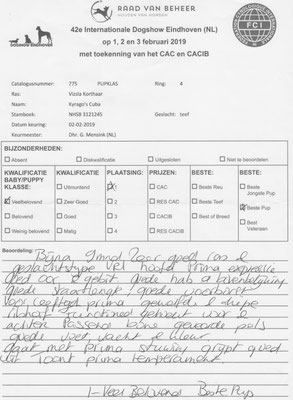 RAAD VAN BEHEER
HOUDEN VAN HONDEN
DOGSHOW EINDHOVEN
FCI
42e Internationale Dogshow Eindhoven (NL)
op 1, 2 en 3 februari 2019
met toekenning van het CAC en CACIB
Catalogusnummer: 775 PUPKLAS Ring: 4
Ras: Vizsla Korthaar
Naam: Kyrago's Cuba
Stamboek: NHSB 3121245 Geslacht: teef
Datum keuring: 02-02-2019
Keurmeester: Dhr. G. Mensink (NL)
BIJZONDERHEDEN:
Absent Diskwalificatie Uitgesloten Niet te beoordelen
KWALIFICATIE BABY/PUPPY KLASSE: KWALIFICATIE: PLAATSING: PRIJZEN: BESTE: BESTE:
Uitmuntend 1 CAC Beste Reu Beste Jongste Pup
Veelbelovend Zeer Goed 2 RES CAC Beste Teef Beste Pup
Belovend Goed 3 CACIB Best of Breed Beste Veteraan
Weinig belovend Matig 4 RES CACIB
Beoordeling:
Bijna 9 mnd goed ras &
geslachtstype vol hoofd prima expressie
goed oor & gebit goede hals &
goede staartlengte goede voorborst
prima gewelfd & diepe
ribkorf gehoekt voor &
achter Passend bone gevoerde pels
goede voet vacht & kleur
gaat met prima stuwing grijpt goed
uit Toont prima temperament
1-Veel Belovend Beste Pup